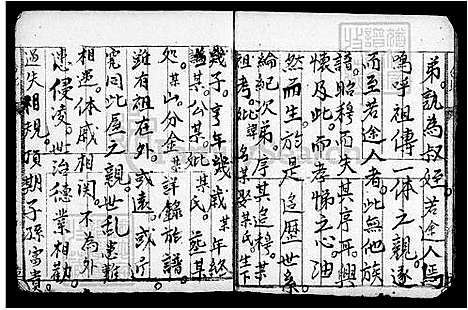 弟。孰為叔姪。若途人焉
嗚呼。祖傳一体之親。遂
而至若途人者。此無他。族
譜昭穆而失其序耳。興
懷及此。而孝悌之心油
然而生。於是迄歷世系。
綸紀次第。序其迨穆。某
祖考。妣某名某娶某氏。生下
幾子。享年幾歲。某年終
謚某公。某妣某氏。葬某
处某山。分金某詳錄族譜。
雖有祖在外。或遠。或疔
究同此尾之親。世乱患難
相逐。体戚相関。不為外
患侵凌。世治德業相勸
過失相規。預期子孫富貴